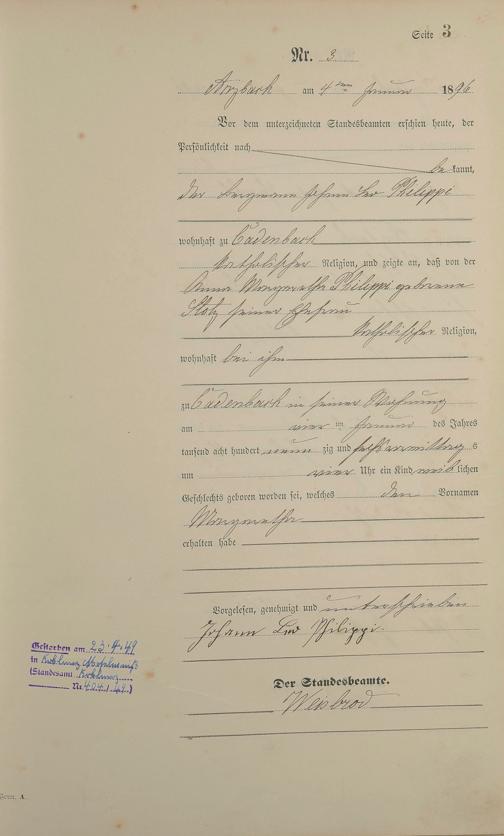 Seite 3
Nr. 3
Arzbach am 4ten Januar 1896
Vor dem unterzeichneten Standesbeamten erschien heute, der
Persönlichkeit nach
bekannt,
der Bergmann Johann Leo Philippi
wohnhaft zu Cadenbach
katholischer Religion, und zeigte an, daß von der
Anna Margaretha Philippi geborene
Stotz seiner Ehefrau
katholischer Religion,
wohnhaft bei ihm
zu Cadenbach in seiner Wohnung
am vierten Januar des Jahres
tausend acht hundert neunzig und sechs Vormittags
um vier Uhr ein Kind weiblichen
Geschlechts geboren worden sei, welches den Vornamen
Margaretha
erhalten habe
Vorgelesen, genehmigt und unterschrieben
Johann Leo Philippi
Gestorben am 23.4.49
in Koblenz
(Standesamt Koblenz
Nr.
Der Standesbeamte.
Weisbrod
Form. A.